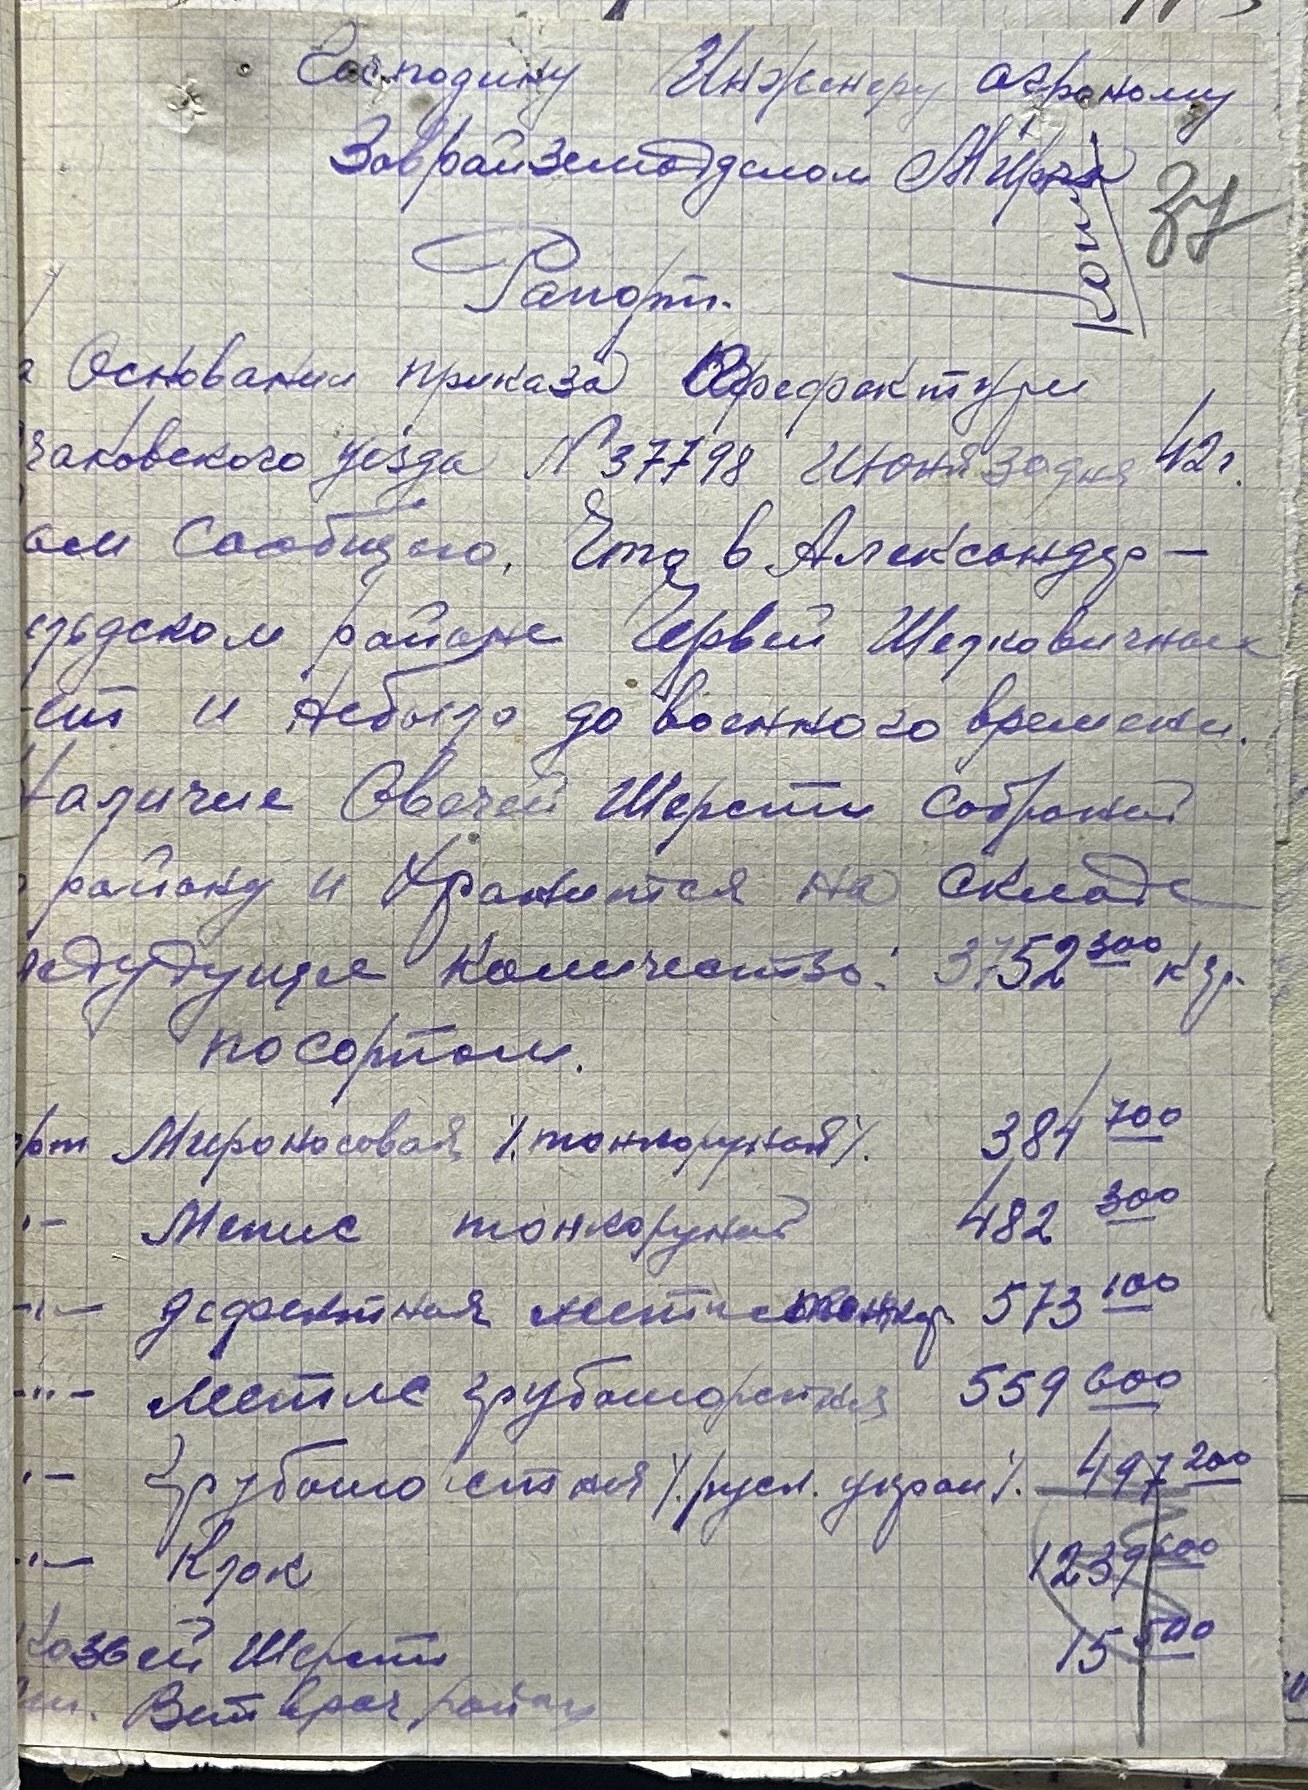 Господину Инженеру агроному
Заврайземотделом
37
Рапорт.
Основании приказа Префектури
чаковского уезда № 37798 Июня 30 дня 42 г.
Сообщаю, Что в Александр-
ском районе Червей Шелковичных
и небыло до военного времени.
Наличие Овечей Шерсти собраной
району и Хранится на складе
количество: 3752 300 кгр.
по сортам.
Мироносовая /.тонкорунная/.
384 700
Метис тонкоруной 482 300
-"- дефектная метис тонкор 573 100
-"- метис грубошорстная 559 600
-"- Грубошо стная /.русл. украи/. 497 200
-"- Клок 1239 600
козьей Шерсти 15 500
Вет врач район